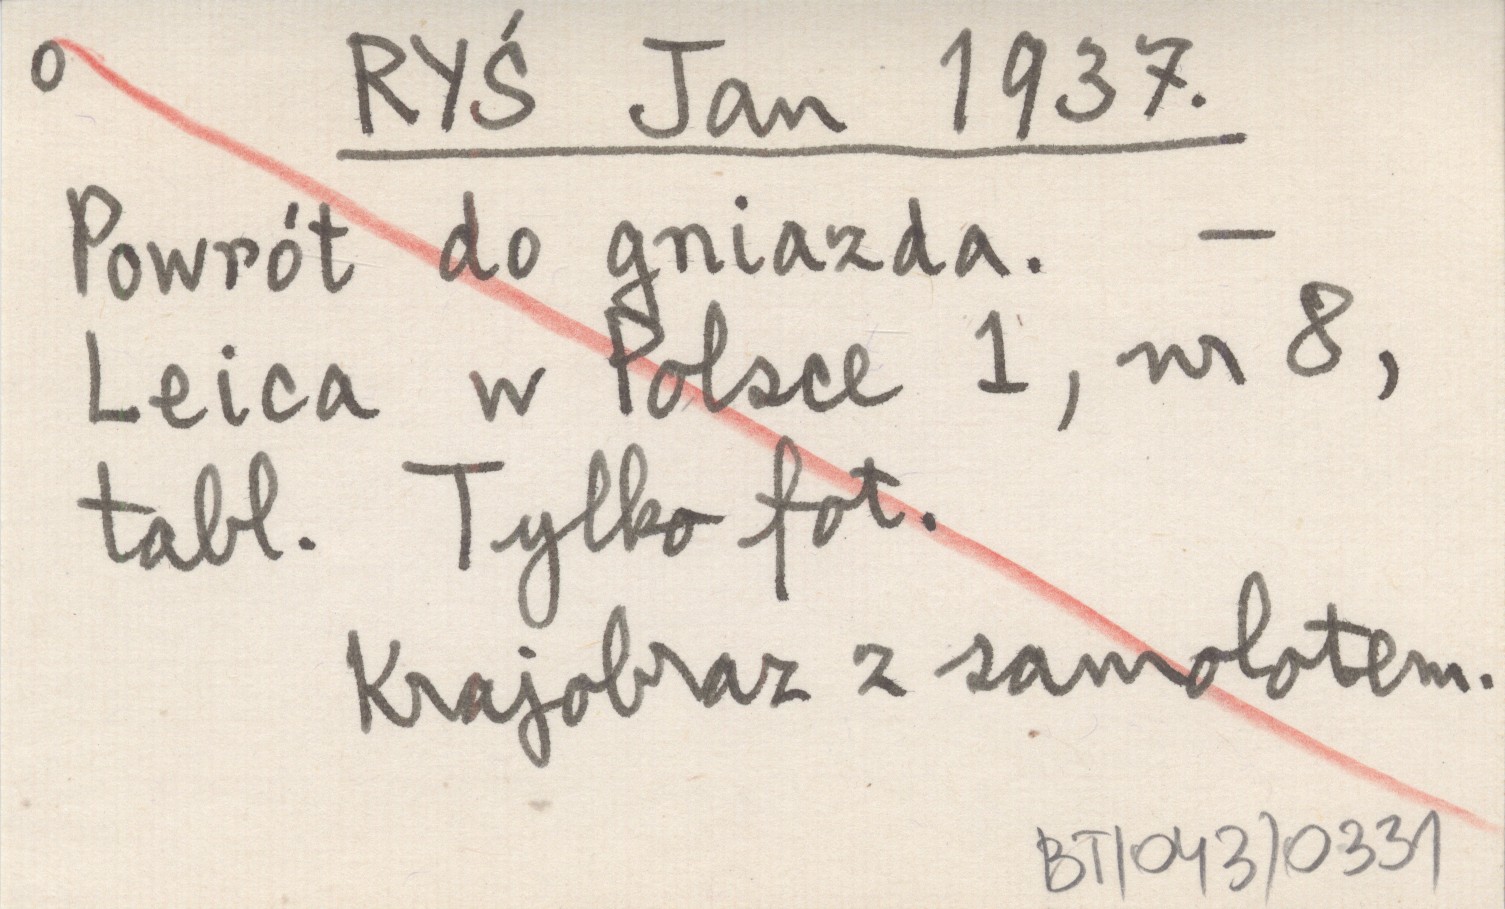 o RYŚ Jan 1937.
Powrót do gniazda. —
Leica w Polsce 1, nr 8,
tabl. Tylko fot.
Krajobraz z samolotem.
BT/043/0331